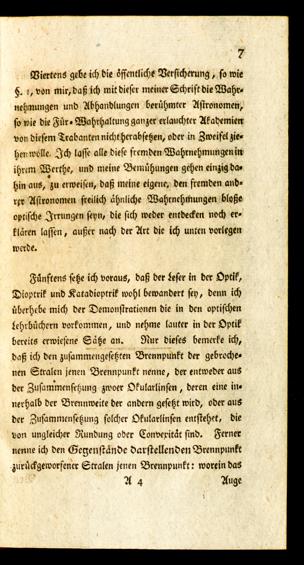 7
Viertens gebe ich die öffentliche Versicherung, so wie
§. 1, von mir, daß ich mit dieser meiner Schrift die Wahr-
nehmungen und Abhandlungen berühmter Astronomen,
so wie die Für-Wahrhaltung ganzer erlauchter Akademien
von diesem Trabanten nicht herabsetzen, oder in Zweifel zie-
hen wolle. Ich lasse alle diese fremden Wahrnehmungen in
ihrem Werthe, und meine Bemühungen gehen einzig da-
hin aus, zu erweisen, daß meine eigene, den fremden and-
rer Astronomen freilich ähnliche Wahrnehmungen bloße
optische Irrungen seyn, die sich weder entdecken noch er-
klären lassen, außer nach der Art die ich unten vorlegen
werde.
Fünftens setze ich voraus, daß der Leser in der Optik,
Dioptrik und Katadioptrik wohl bewandert sey, denn ich
überhebe mich der Demonstrationen die in den optischen
Lehrbüchern vorkommen, und nehme lauter in der Optik
bereits erwiesene Sätze an. Nur dieses bemerke ich,
daß ich den zusammengesetzten Brennpunkt der gebroche-
nen Stralen jenen Brennpunkt nenne, der entweder aus
der Zusammensetzung zwoer Okularlinsen, deren eine in-
nerhalb der Brennweite der andern gesetzt wird, oder aus
der Zusammensetzung solcher Okularlinsen entstehet, die
von ungleicher Rundung oder Convexität sind. Ferner
nenne ich den Gegenstände darstellenden Brennpunkt
zurückgeworfener Stralen jenen Brennpunkt: worein das
A 4 Auge